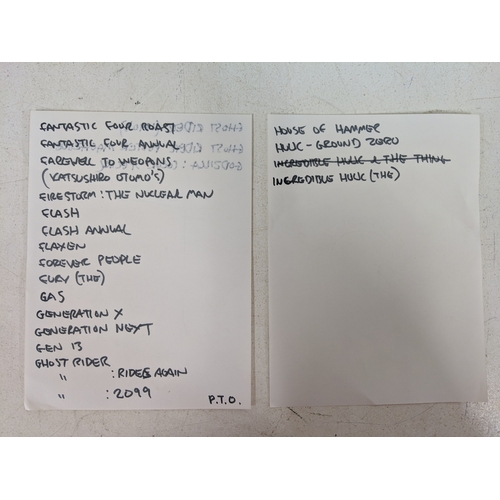 FANTASTIC FOUR ROAST
FANTASTIC FOUR ANNUAL
FAREWELL TO WEAPONS
(KATSUSHIRO OTOMO'S)
FIRESTORM : THE NUCLEAR MAN
FLASH
FLASH ANNUAL
FLAXEN
FOREVER PEOPLE
FURY (THE)
GAS
GENERATION X
GENERATION NEXT
GEN 13
GHOST RIDER
" : RIDES AGAIN
" : 2099
P.T.O.
HOUSE OF HAMMER
HULK - GROUND ZERO
INCREDIBLE HULK & THE THING
INCREDIBLE HULK (THE)